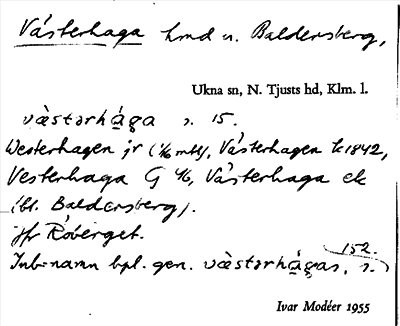 Västerhaga hmd u. Baldersberg,
Ukna sn, N. Tjusts hd, Klm. l.
væ̀stərhá̱ga s. 15.
Westerhagen jr (1/6 mtl), Västerhagen k 1842,
Vesterhaga G 4/6, Västerhaga ek
(bl. Baldersberg).
Jfr Röberget.
Inb=namn bpl. gen. væ̀stərhá̱gas, s. 152.
Ivar Modéer 1955